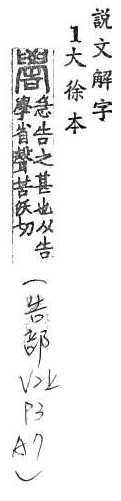 説文解字
1大徐本
嚳
急告之甚也从告
學省聲苦沃切
(告部
V2上
P3
A7)